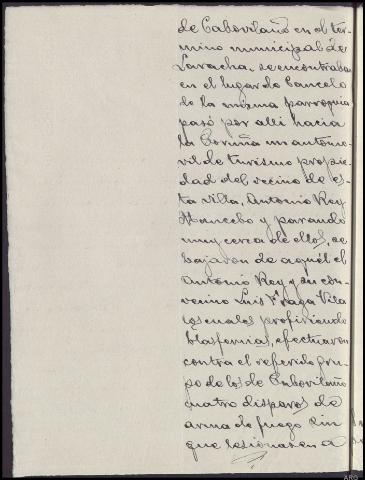 de Cabovilaño en el ter-
mino municipal de
Laracha, se encontraba
en el lugar do Cancelo
de la misma parroquia
pasó por alli hacia
la Coruña un automo-
vil de turismo propie-
dad del vecino de es-
ta villa, Antonio Rey
Mancebo y parando
muy cerca de ellos, se
bajaron de aquél el
Antonio Rey y su con-
vecino Luis Fraga Vila
los cuales profiriendo
blasfemias, efectuaron
contra el referido gru-
po de los de Cabovilaño
cuatro disparos de
arma de fuego sin
que lesionasen a
ARG